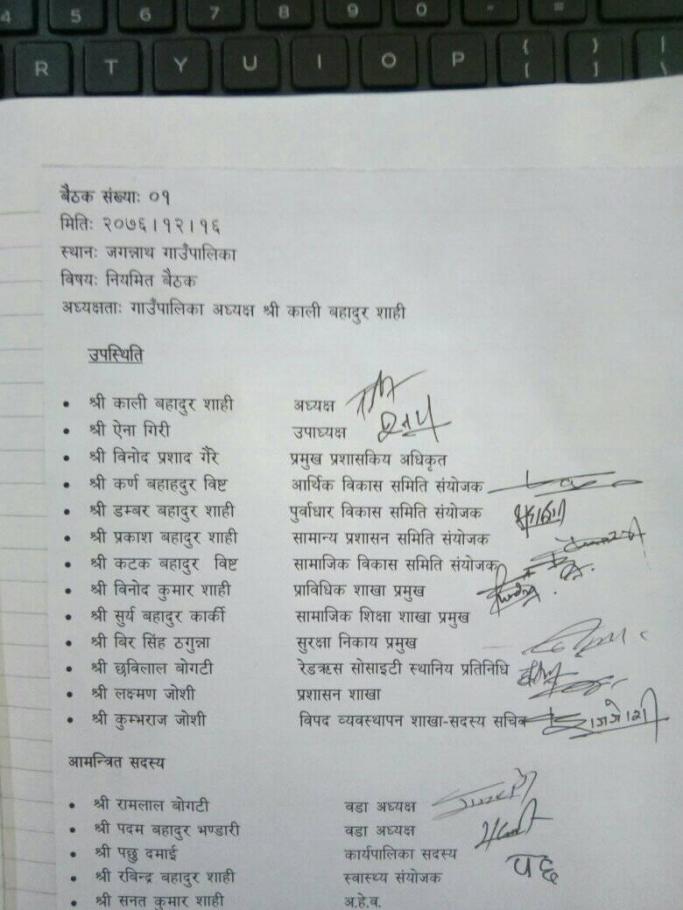 4 5 6 7 8 9 0 - =
R T Y U I O P { [ } ] | \
बैठक संख्याः ०१
मितिः २०७६।१२।१६
स्थानः जगन्नाथ गाउँपालिका
विषयः नियमित बैठक
अध्यक्षताः गाउँपालिका अध्यक्ष श्री काली बहादुर शाही
उपस्थिति
• श्री काली बहादुर शाही अध्यक्ष
• श्री ऐना गिरी उपाध्यक्ष
• श्री विनोद प्रशाद गैरे प्रमुख प्रशासकिय अधिकृत
• श्री कर्ण बहाहदुर विष्ट आर्थिक विकास समिति संयोजक
• श्री डम्बर बहादुर शाही पुर्वाधार विकास समिति संयोजक
• श्री प्रकाश बहादुर शाही सामान्य प्रशासन समिति संयोजक
• श्री कटक बहादुर विष्ट सामाजिक विकास समिति संयोजक
• श्री विनोद कुमार शाही प्राविधिक शाखा प्रमुख
• श्री सुर्य बहादुर कार्की सामाजिक शिक्षा शाखा प्रमुख
• श्री बिर सिंह ठगुन्ना सुरक्षा निकाय प्रमुख
• श्री छविलाल बोगटी रेडक्रस सोसाइटी स्थानिय प्रतिनिधि
• श्री लक्ष्मण जोशी प्रशासन शाखा
• श्री कुम्भराज जोशी विपद व्यवस्थापन शाखा-सदस्य सचिव
आमन्त्रित सदस्य
• श्री रामलाल बोगटी वडा अध्यक्ष
• श्री पदम बहादुर भण्डारी वडा अध्यक्ष
• श्री पछु दमाई कार्यपालिका सदस्य पछु
• श्री रविन्द्र बहादुर शाही स्वास्थ्य संयोजक
• श्री सनत कुमार शाही अ.हे.ब.